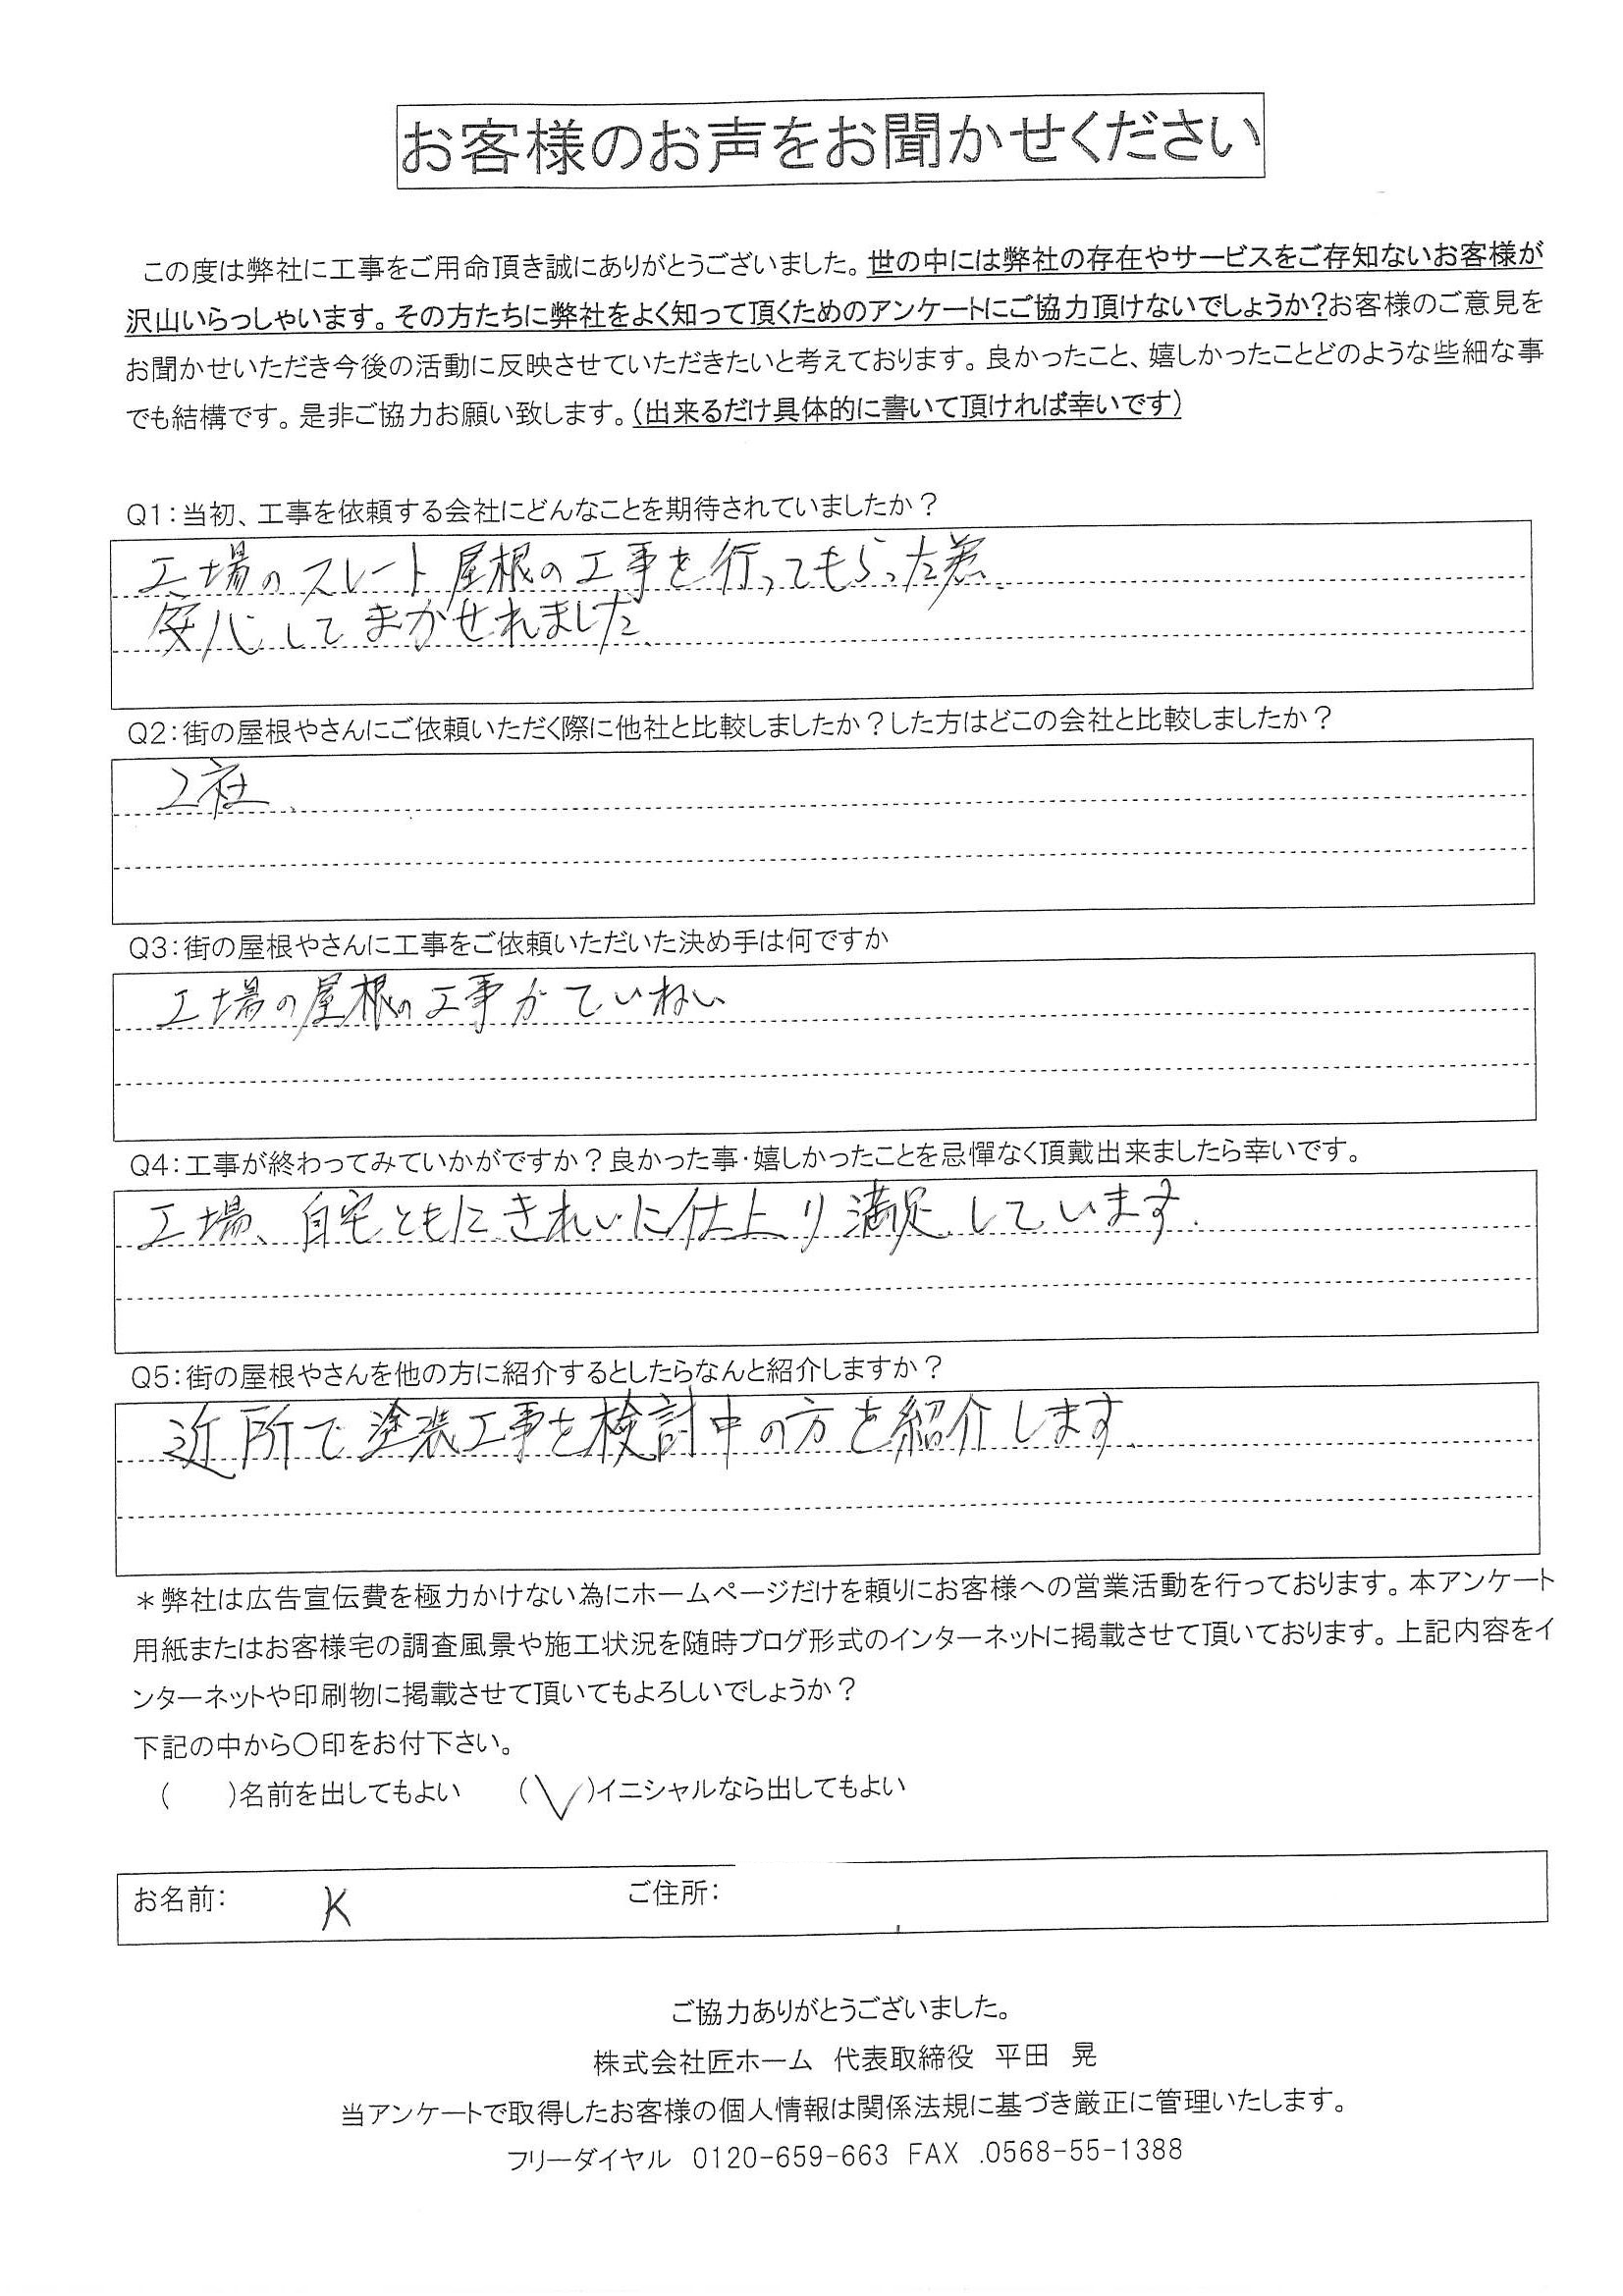 お客様のお声をお聞かせください
この度は弊社に工事をご用命頂き誠にありがとうございました。世の中には弊社の存在やサービスをご存知ないお客様が
沢山いらっしゃいます。その方たちに弊社をよく知って頂くためのアンケートにご協力頂けないでしょうか?お客様のご意見を
お聞かせいただき今後の活動に反映させていただきたいと考えております。良かったこと、嬉しかったことどのような些細な事
でも結構です。是非ご協力お願い致します。(出来るだけ具体的に書いて頂ければ幸いです)
Q1:当初、工事を依頼する会社にどんなことを期待されていましたか?
工場のスレート屋根の工事を行ってもらった為、
安心してまかせれました、
Q2:街の屋根やさんにご依頼いただく際に他社と比較しましたか?した方はどこの会社と比較しましたか?
2社、
Q3:街の屋根やさんに工事をご依頼いただいた決め手は何ですか
工場の屋根の工事がていねい
Q4:工事が終わってみていかがですか?良かった事・嬉しかったことを忌憚なく頂戴出来ましたら幸いです。
工場、自宅ともにきれいに仕上り満足しています、
Q5:街の屋根やさんを他の方に紹介するとしたらなんと紹介しますか?
近所で塗装工事を検討中の方を紹介します、
*弊社は広告宣伝費を極力かけない為にホームページだけを頼りにお客様への営業活動を行っております。本アンケート
用紙またはお客様宅の調査風景や施工状況を随時ブログ形式のインターネットに掲載させて頂いております。上記内容をイ
ンターネットや印刷物に掲載させて頂いてもよろしいでしょうか?
下記の中から〇印をお付下さい。
( )名前を出してもよい (✓)イニシャルなら出してもよい
お名前: K ご住所:
ご協力ありがとうございました。
株式会社匠ホーム 代表取締役 平田 晃
当アンケートで取得したお客様の個人情報は関係法規に基づき厳正に管理いたします。
フリーダイヤル 0120-659-663 FAX .0568-55-1388